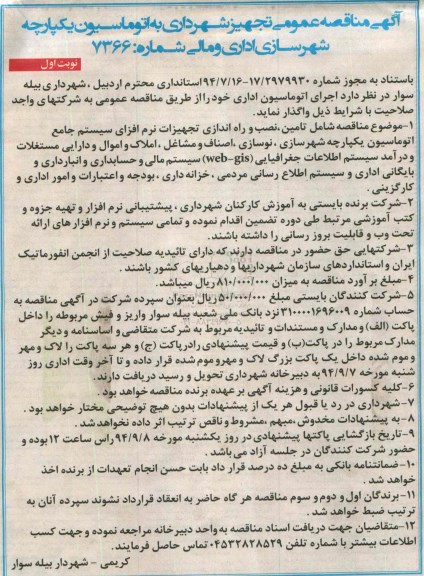 آگهی مناقصه عمومی تجهیز شهرداری به اتوماسیون یکپارچه
شهرسازی اداری و مالی شماره: ۷۳۶۶
نوبت اول
باستناد به مجوز شماره ۱۷/۲۹۷۹۹۳۰-۹۴/۷/۱۶ استانداری محترم اردبیل ، شهرداری بیله
سوار در نظر دارد اجرای اتوماسیون اداری خود را از طریق مناقصه عمومی به شرکتهای واجد
صلاحیت با شرایط ذیل واگذار نماید.
۱-موضوع مناقصه شامل تامین،نصب و راه اندازی تجهیزات نرم افزای سیستم جامع
اتوماسیون یکپارچه شهرسازی ، نوسازی ،اصناف و مشاغل ، املاک و اموال و دارایی مستغلات
و درآمد سیستم اطلاعات جغرافیایی (web-gis) سیستم مالی و حسابداری و انبارداری و
بایگانی اداری و سیستم اطلاع رسانی مردمی ، خزانه داری ، بودجه و اعتبارات و امور اداری و
کارگزینی .
۲-شرکت برنده بایستی به آموزش کارکنان شهرداری ، پیشتیبانی نرم افزار و تهیه جزوه و
کتب آموزشی مرتبط طی دوره تضمین اقدام نموده و تمامی سیستم و نرم افزار های ارائه
تحت وب و قابلیت بروز رسانی را داشته باشند.
۳-شرکتهایی حق حضور در مناقصه دارند که دارای تائیدیه صلاحیت از انجمن انفورماتیک
ایران و استانداردهای سازمان شهرداریها و دهیاریهای کشور باشند .
۴-مبلغ بر آورد مناقصه به میزان ۸۱۰/۰۰۰/۰۰۰ ریال میباشد.
۵-شرکت کنندگان بایستی مبلغ ۵۰/۰۰۰/۰۰۰ ریال بعنوان سپرده شرکت در آگهی مناقصه به
حساب شماره ۳۱۰۰۰۰۱۶۹۶۰۰۹ نزد بانک ملی شعبه بیله سوار واریز و فیش مربوطه را داخل
پاکت (الف) و مدارک و مستندات و تائیدیه مربوط به شرکت متقاضی و اساسنامه و دیگر
مدارک مربوط را در پاکت(ب) و قیمت پیشنهادی رادرپاکت (ج) و هر سه پاکت را لاک و مهر
و موم شده داخل یک پاکت بزرگ لاک و مهرو موم شده قرار داده و تا آخر وقت اداری روز
شنبه مورخه ۹۴/۹/۷ به دبیرخانه شهرداری تحویل و رسید دریافت دارند.
۶-کلیه کسورات قانونی و هزینه آگهی بر عهده برنده مناقصه خواهد بود .
۷-شهرداری در رد یا قبول هر یک از پیشنهادات بدون هیچ توضیحی مختار خواهد بود .
۸-به پیشنهادات مخدوش،مبهم ،مشروط و ناقص ترتیب اثر داده نخواهد شد .
۹-تاریخ بازگشایی پاکتها پیشنهادی در روز یکشنبه مورخه ۹۴/۹/۸ راس ساعت ۱۲ بوده و
حضور شرکت کنندگان در جلسه آزاد می باشد .
۱۰-ضمانتنامه بانکی به مبلغ ده درصد قرار داد بابت حسن انجام تعهدات از برنده اخذ
خواهد شد .
۱۱-برندگان اول و دوم و سوم مناقصه هر گاه حاضر به انعقاد قرارداد نشوند سپرده آنان به
ترتیب ضبط خواهد شد .
۱۲-متقاضیان جهت دریافت اسناد مناقصه به واحد دبیرخانه مراجعه نموده و جهت کسب
اطلاعات بیشتر با شماره تلفن ۰۴۵۳۲۸۲۸۵۲۹ تماس حاصل فرمایند.
کریمی - شهردار بیله سوار